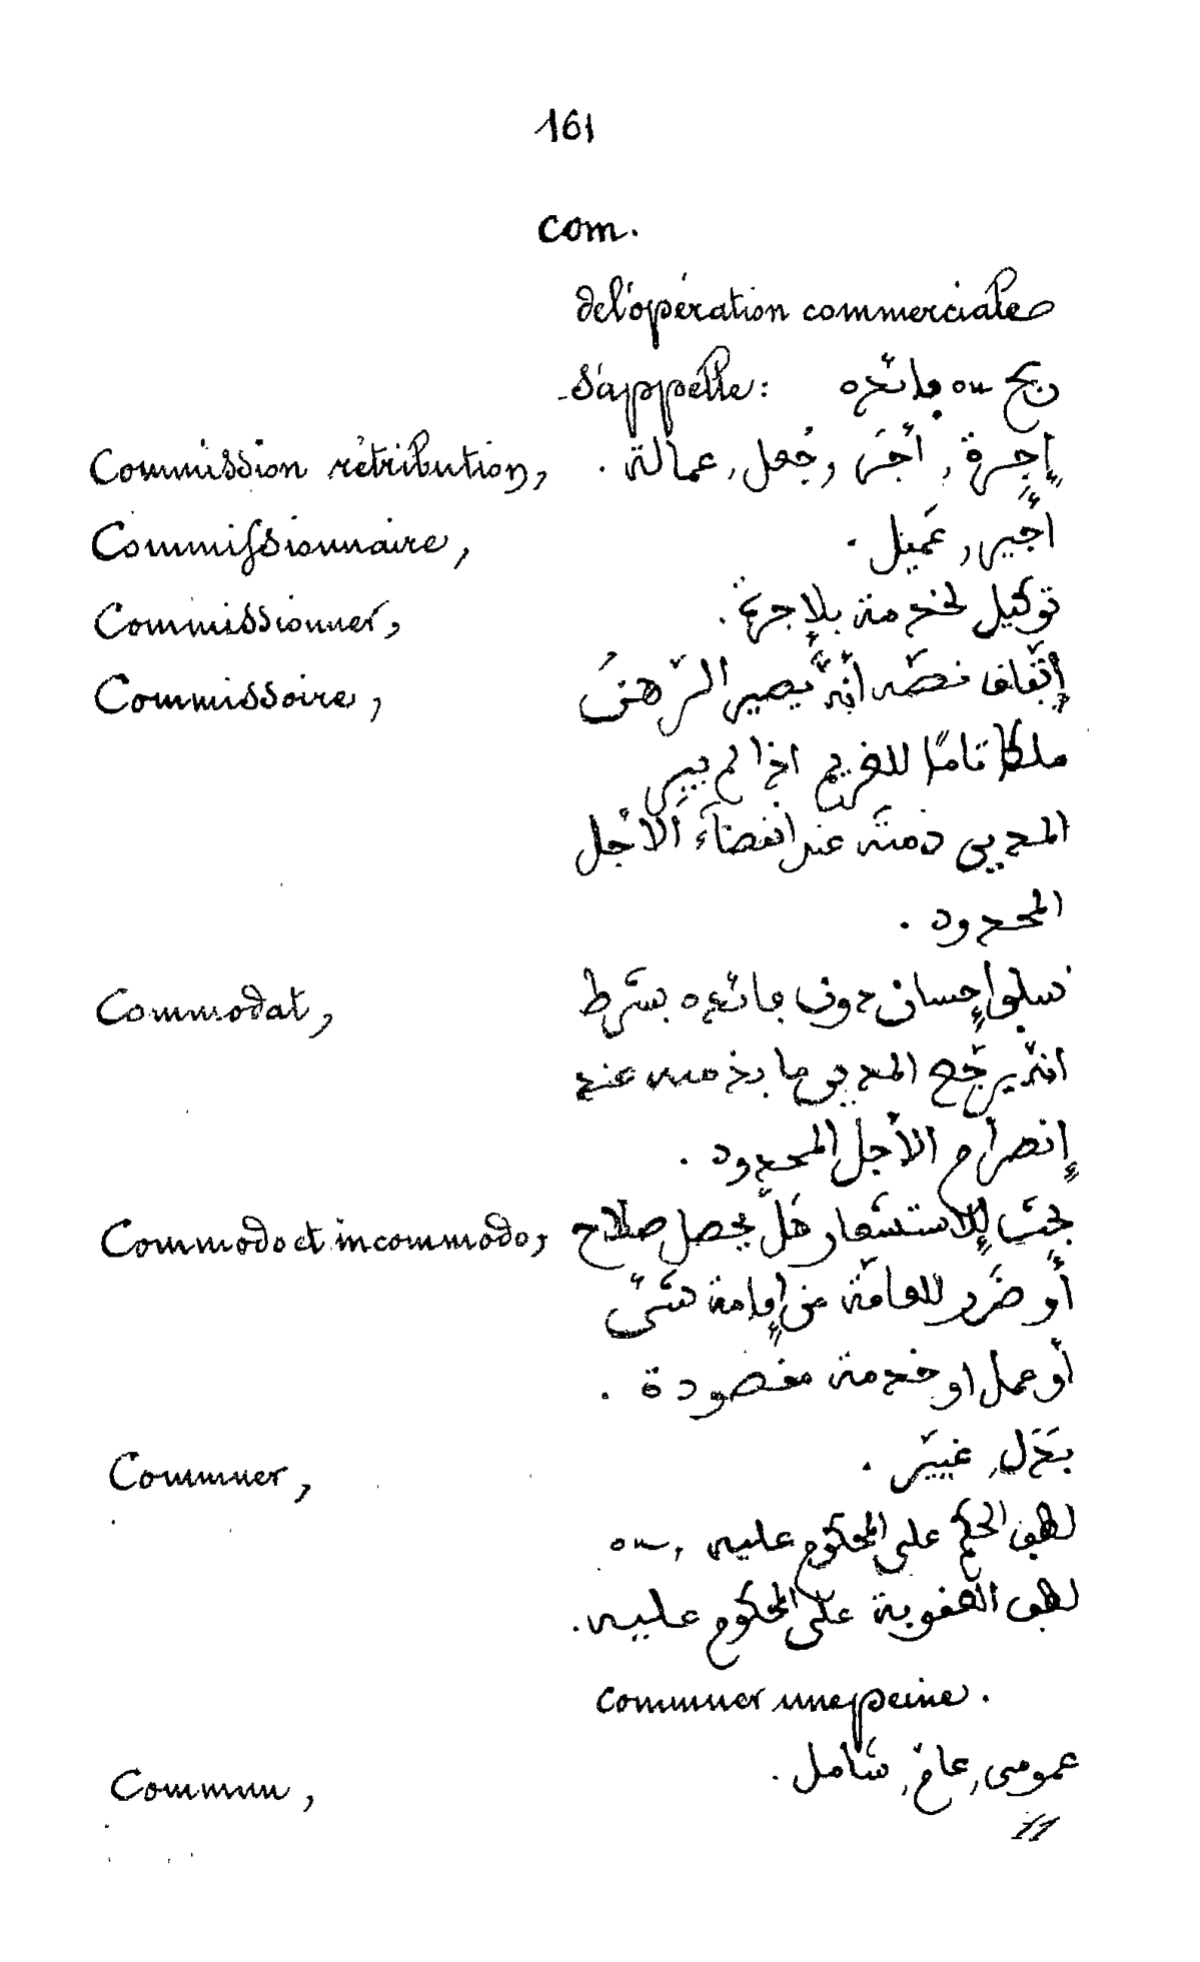 161
com.
de l'opération commerciale
s'appelle: ربح ou فائده
Commission rétribution, إجرة, أجر, جُعل, عمالة.
Commissionnaire, أجير, عَميل.
Commissionner, توكيل لخدمة بلإجرة.
Commissoire, إتّفاق نصّه أنّه يصير الرّهنُ
ملكا تامّا للغريم اذا لم يبر
المديى ذمته عند انقضآء الاجل
المحدود.
Commodat, سلو إحسان دون فائده بشرط
انه يرجّع المديى ما بذمته عند
إنصرام الأجل المحدود.
Commodo et incommodo, بحث للإستشعار هل يحصل صلاح
أو ضَرر للعامّة من إقامة شئ
أو عمل او خدمة مقصودة.
Commuer, بدّل, غيّر.
لطف الحكم على المحكوم عليه, ou
لطف العقوبة على المحكوم عليه.
commuer une peine.
Commun, عمومى, عام, شامل.
11